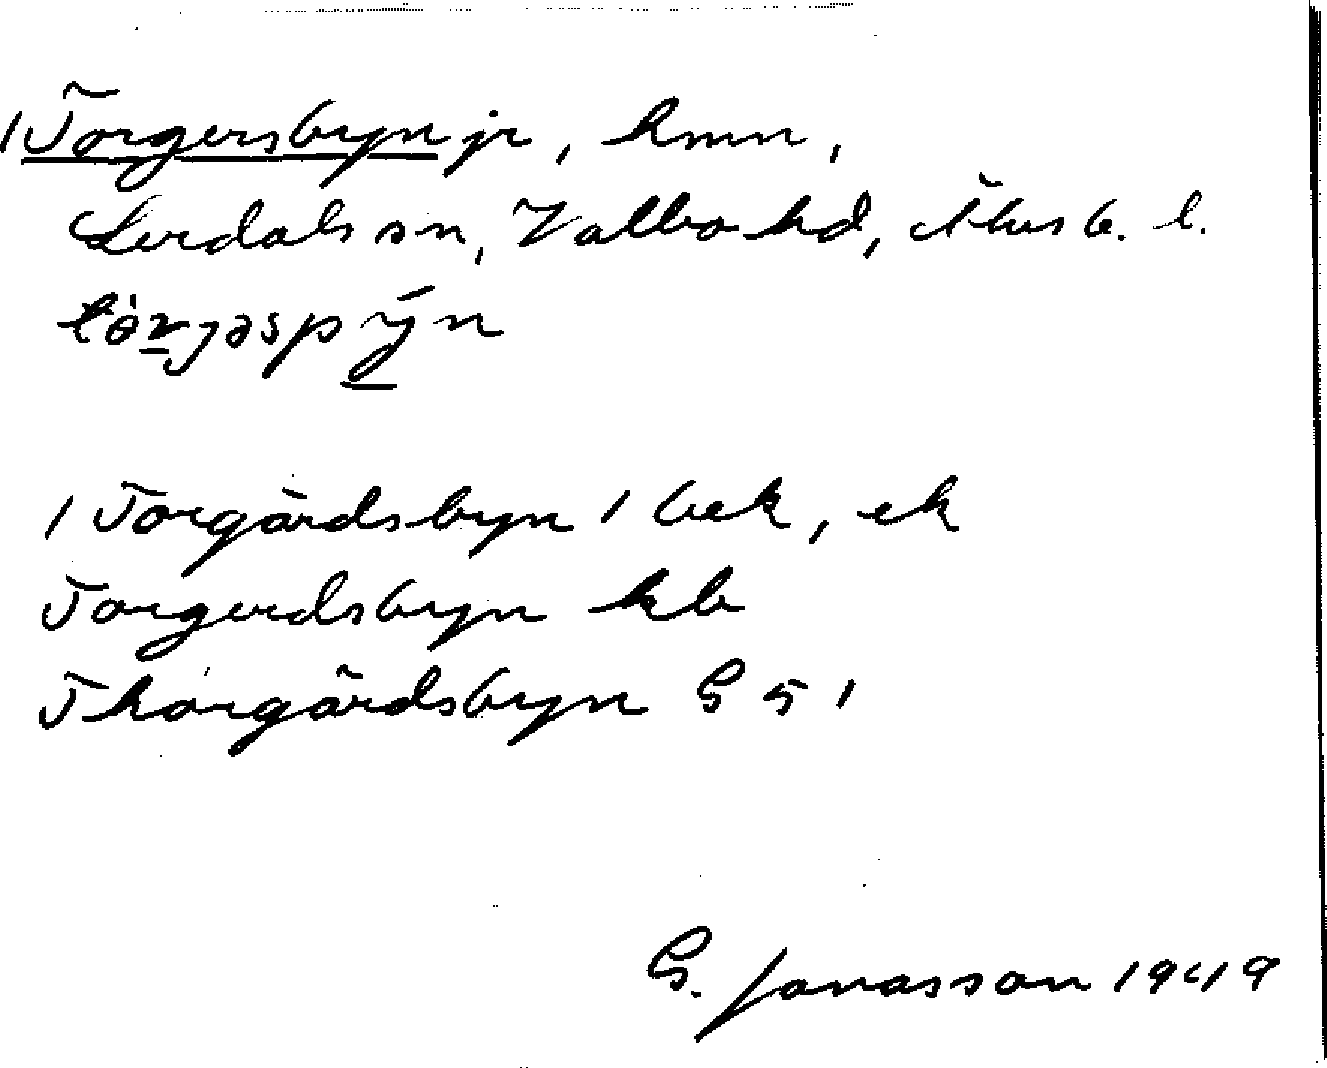 /Torgersbyn jr, hmn,
Lerdals sn, Valbo hd, Älvsb. l.
/ Torgärdsbyn / bek, ek
Torgerdsbyn kb
Thorgärdsbyn G 5 1
G. Jonasson 1949